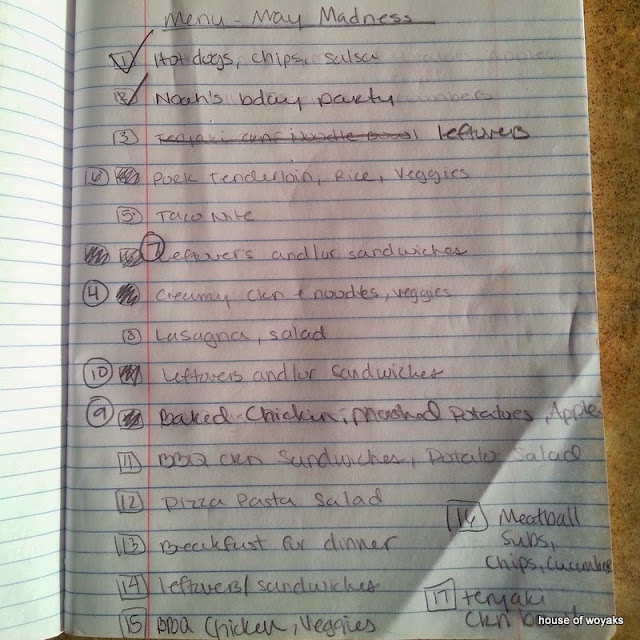 Menu - May Madness
1 Hotdogs, chips, salsa
2 Noah's bday party
3 Teriyaki ckn Noodle Bowl leftovers
6 Pork Tenderloin, Rice, Veggies
5 Taco Nite
7 Leftovers and/or sandwiches
4 Creamy ckn + noodles, veggies
8 Lasagna, salad
10 leftovers and/or sandwiches
9 Baked Chicken, Mashed Potatoes, Apples
11 BBQ ckn Sandwiches, Potato Salad
12 Pizza Pasta Salad
13 Breakfast for dinner
14 leftovers/sandwiches
15 BBQ Chicken, Veggies
16 Meatball
subs,
chips, cucumber
17 teriyaki
ckn
house of woyaks